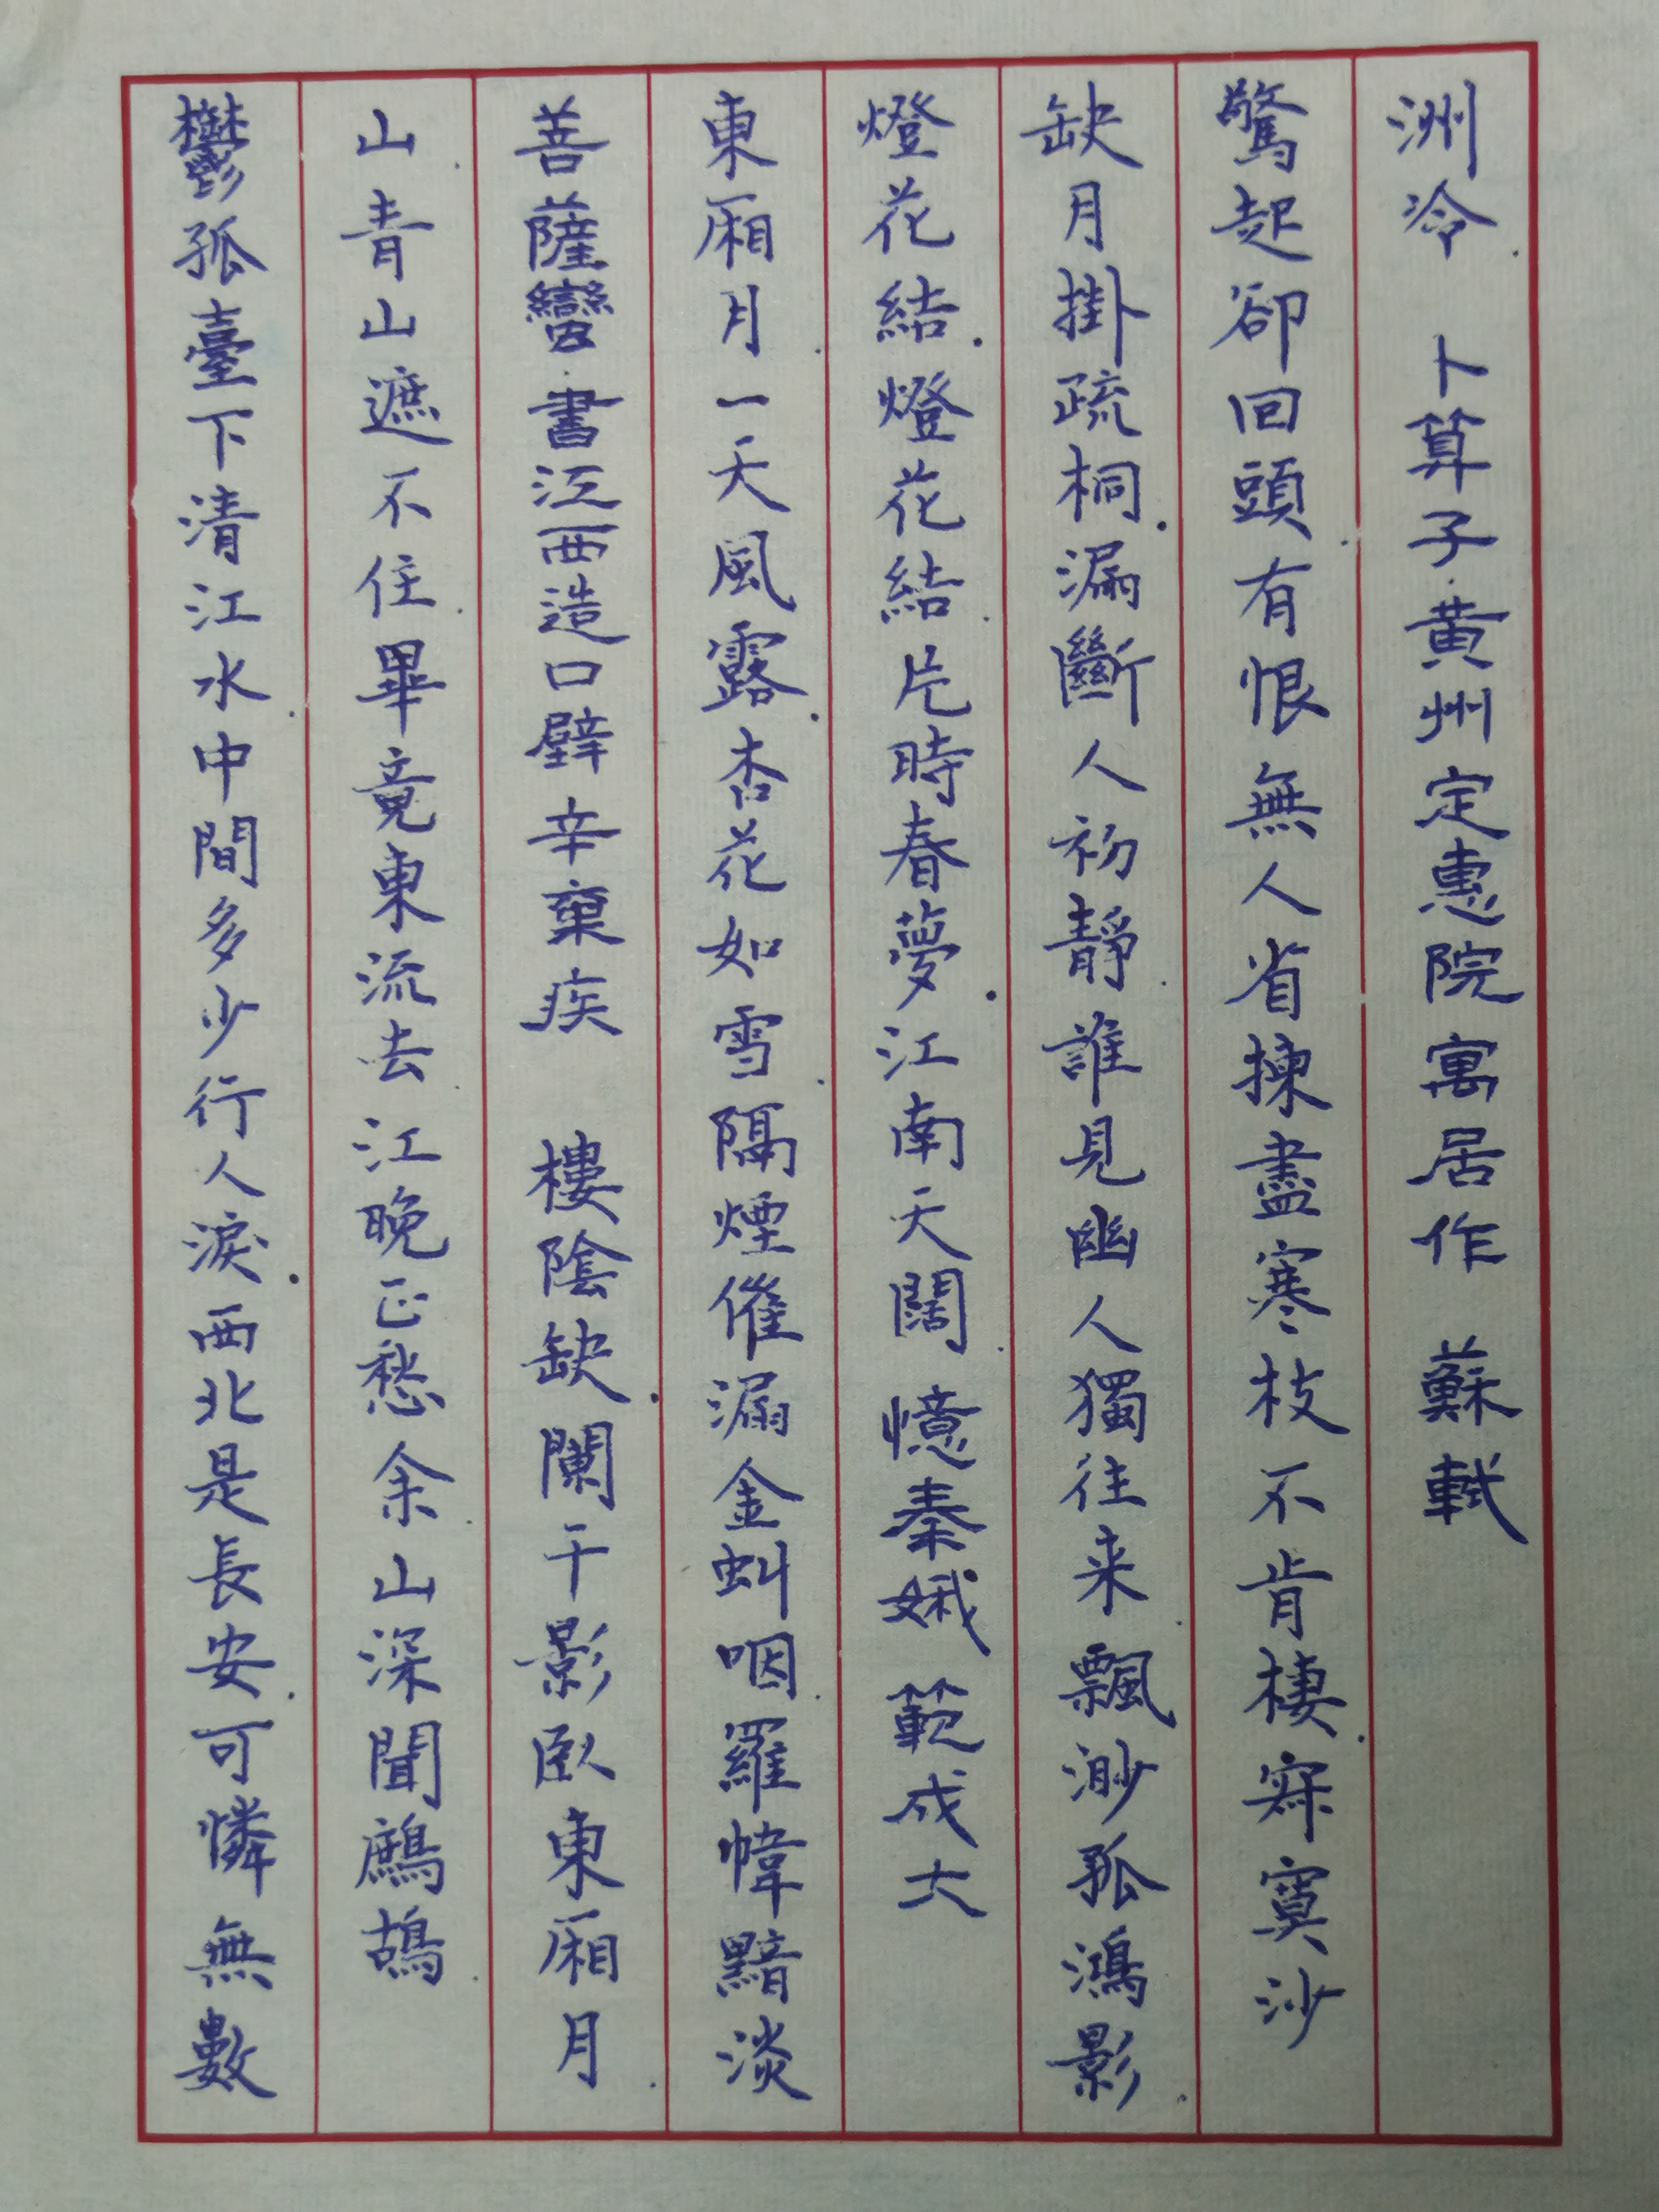 鬱孤臺下清江水中間多少行人淚西北是長安可憐無數
山青山遮不住畢竟東流去江晚正愁余山深聞鷓鴣
菩薩蠻·書江西造口壁辛棄疾 樓陰缺闌干影臥東廂月
東廂月一天風露杏花如雪隔煙催漏金虯咽羅幃黯淡
燈花結燈花結片時春夢江南天闊 憶秦娥 範成大
缺月掛疏桐漏斷人初靜誰見幽人獨往来飄渺孤鴻影
驚起卻回頭有恨無人省揀盡寒枝不肯棲寂寞沙
洲冷 卜算子·黄州定惠院寓居作 蘇軾